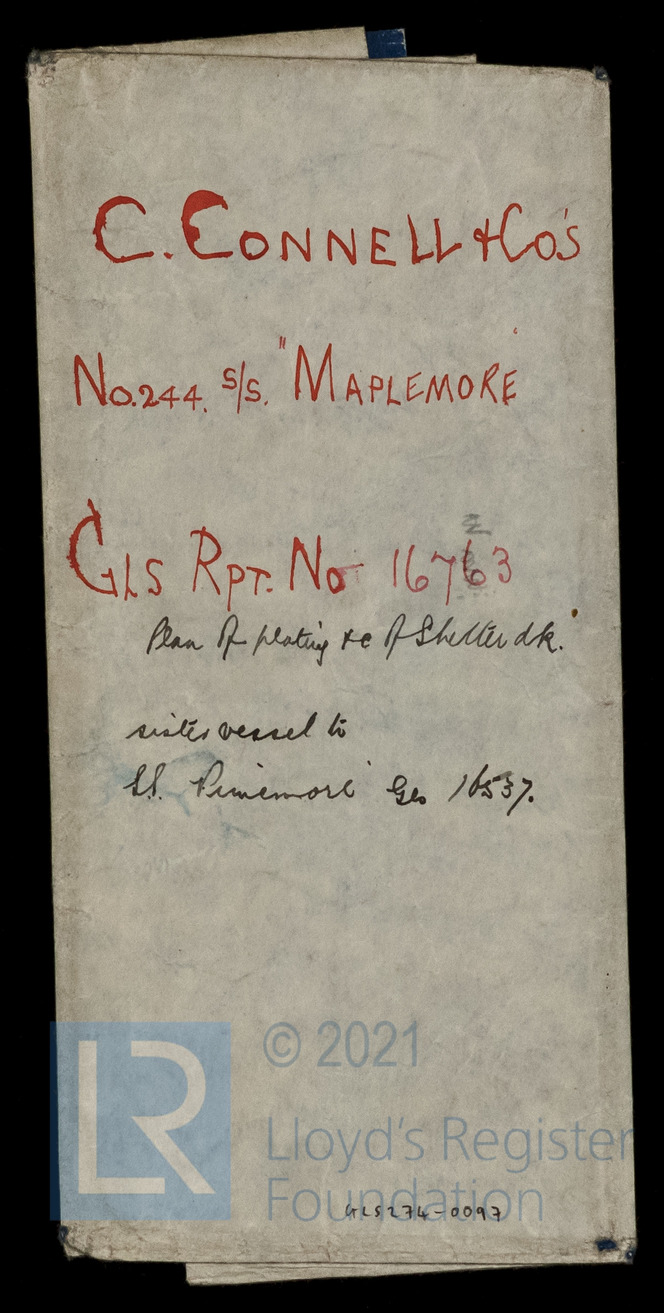 C. CONNELL & Co's
No. 244. S/S. "MAPLEMORE"
GLS RPT. No 16763
Plan of plating &c of Shelter dk.
sister vessel to
S.S. "Pinemore" Gls 16537.
LR
© 2021
Lloyd's Register
Foundation
GLS274-0097